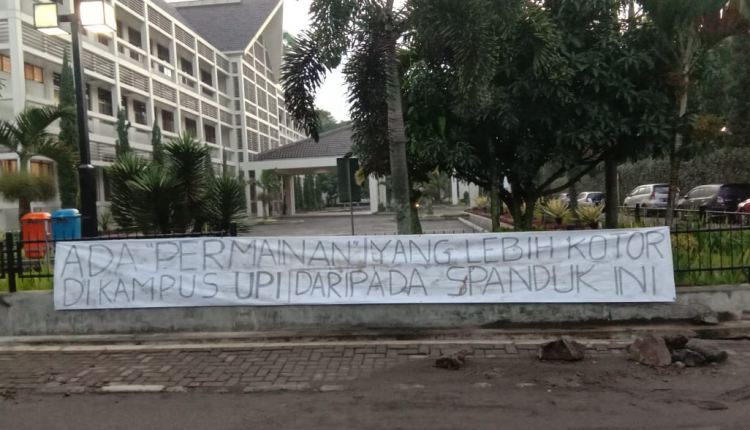 ADA "PERMAINAN" YANG LEBIH KOTOR
DI KAMPUS UPI DARIPADA SPANDUK INI